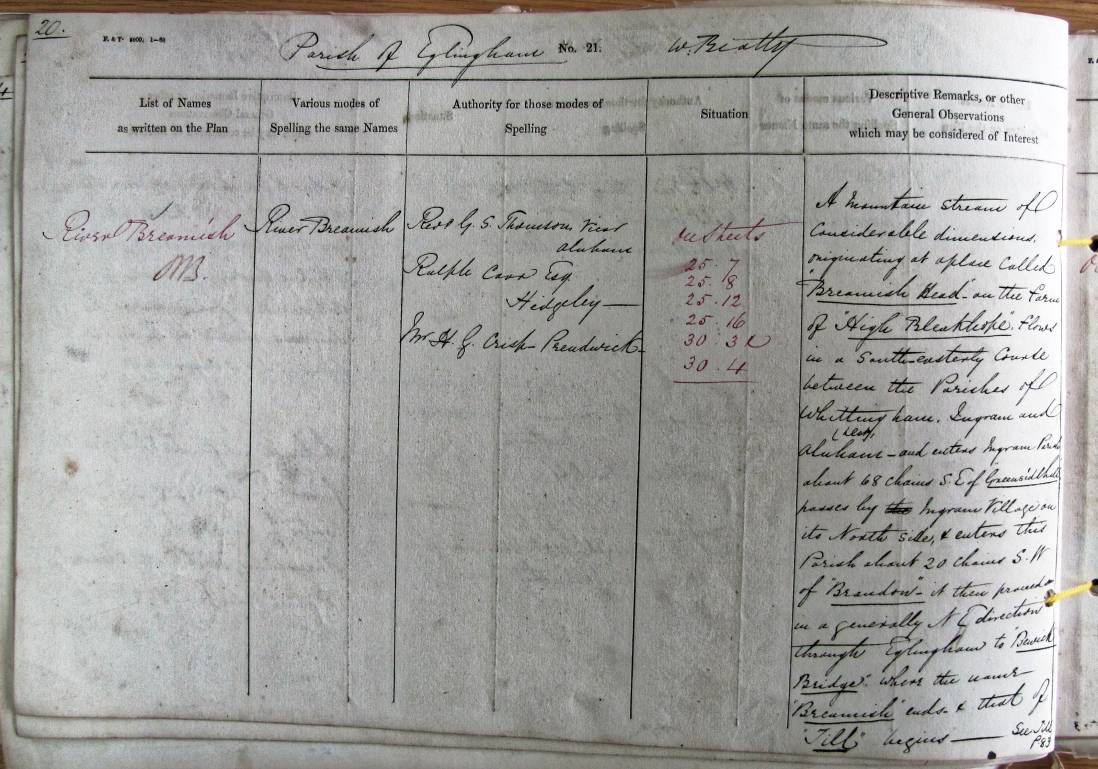 20.
Parish of Eglingham No. 21. W. Beatty
List of Names
as written on the Plan
Various modes of
Spelling the same Names
Authority for those modes of
Spelling
Situation
Descriptive Remarks, or other
General Observations
which may be considered of Interest
River Breamish
River Breamish
Revd G. S. Thomson Vicar
Alnham
Ralph Carr Esq
Hedgeley
Mr H. G. Crisp - Prendwick
on Sheets
25 . 7
25 . 8
25 . 12
25 . 16
30 . 3
30 . 4
A Mountain stream of
Considerable dimensions.
originating at a place Called
"Breamish Head" on the farm
of "High Bleakhope". Flows
in a South-easterly Course
between the Parishes of
Whittingham, Ingram and
Alnham - and enters Ingram Parish
about 68 chains S.E of Greensidehill
passes by the Ingram Village on
its North side, & enters this
Parish about 20 chains S.W
of "Brandon" - it then proceeds
in a generally N E direction
through Eglingham to "Bewick
Bridge". where the name
"Breamish" ends - & that of
"Till" begins — See Till
P 83